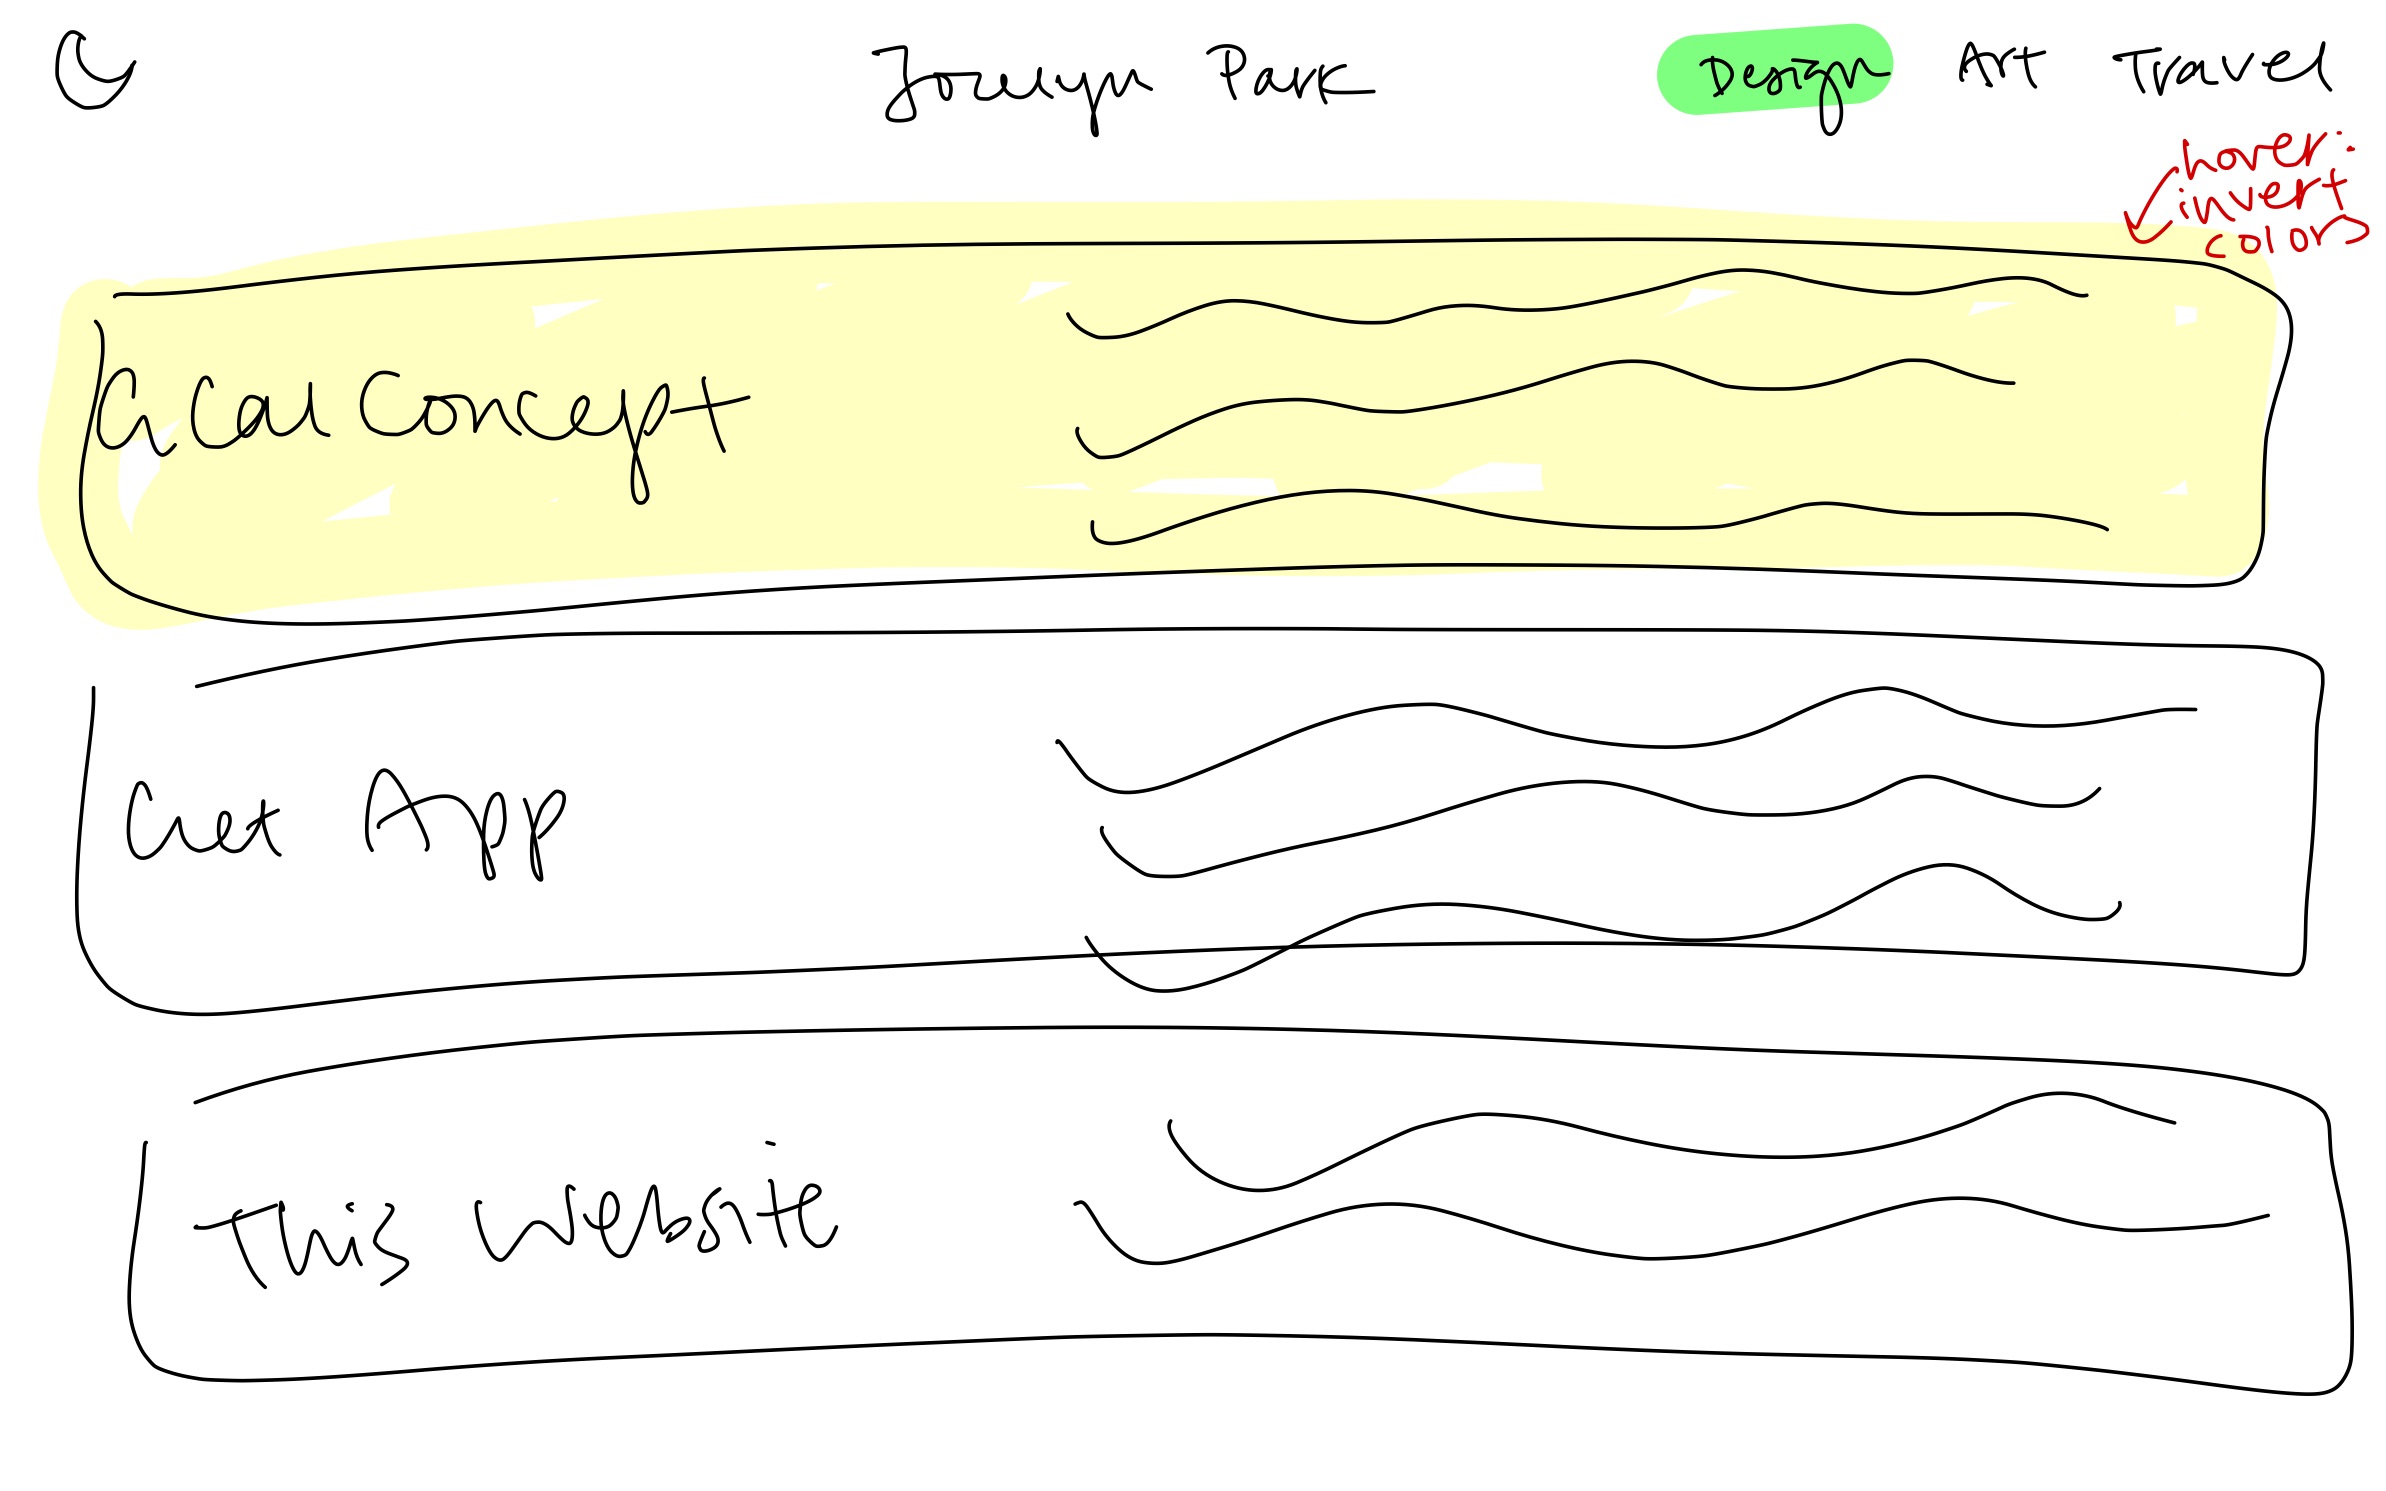 Park
Design Art Travel
hover:
invert
colors
GCal Concept
Chat App
This Website